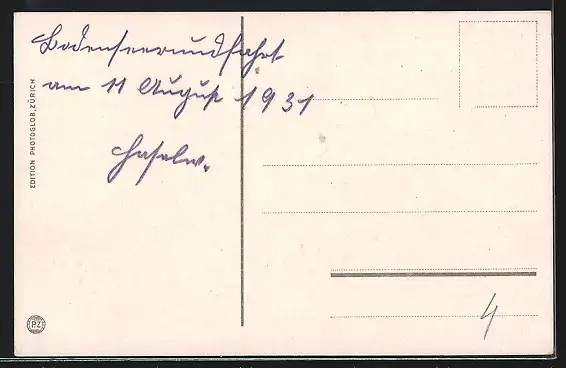 Bodenseerundfahrt
am 11 August 1931
EDITION PHOTOGLOB, ZÜRICH
P.Z
4